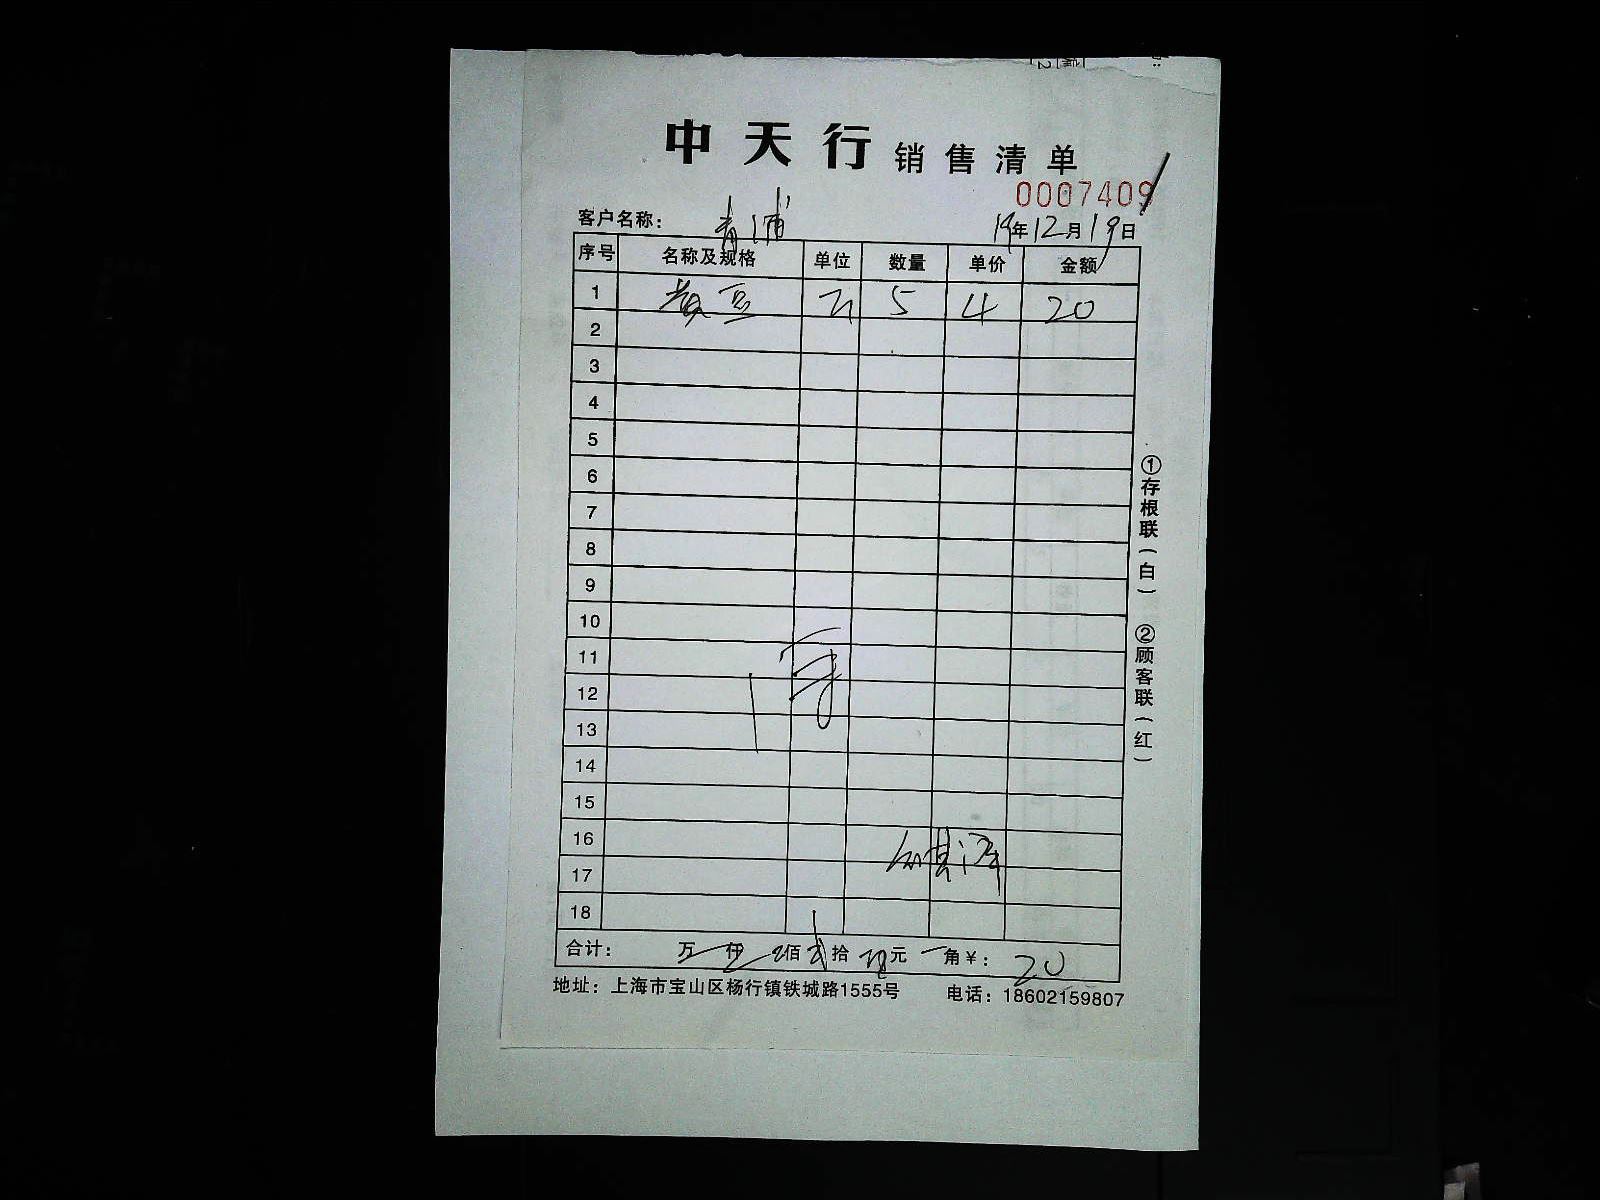 中天行 销售清单
0007409
客户名称: 青浦 19年12月19日
序号 名称及规格 单位 数量 单价 金额
1 黄豆 斤 5 4 20
2
3
4
5
6
7
8
9
10
11
12
13
14
15
16
17
18
合计: 万 仟 佰 贰拾 元 角 ¥: 20
地址: 上海市宝山区杨行镇铁城路1555号 电话: 18602159807
①存根联(白) ②顾客联(红)